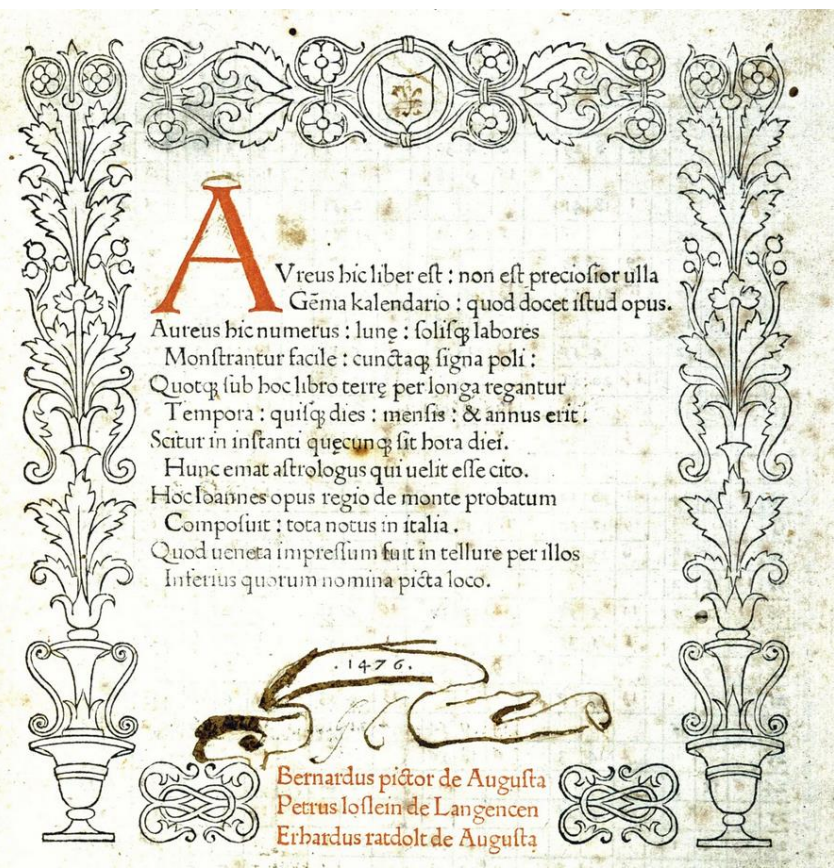 AVreus hic liber eſt : non eſt precioſior ulla
Gēma kalendario : quod docet iſtud opus.
Aureus hic numerus : lunę : ſoliſqꝫ labores
Monſtrantur facile : cunctaqꝫ ſigna poli :
Quotqꝫ ſub hoc libro terrę per longa regantur
Tempora : quiſqꝫ dies : menſis : & annus erit :
Scitur in inſtanti quęcunqꝫ ſit hora diei.
Hunc emat aſtrologus qui uelit eſſe cito.
Hoc Ioannes opus regio de monte probatum
Compoſuit : tota notus in italia .
Quod ueneta impreſſum fuit in tellure per illos
Inferius quorum nomina picta loco.
. 1476.
Bernardus pictor de Auguſta
Petrus loſlein de Langencen
Erhardus ratdolt de Auguſta